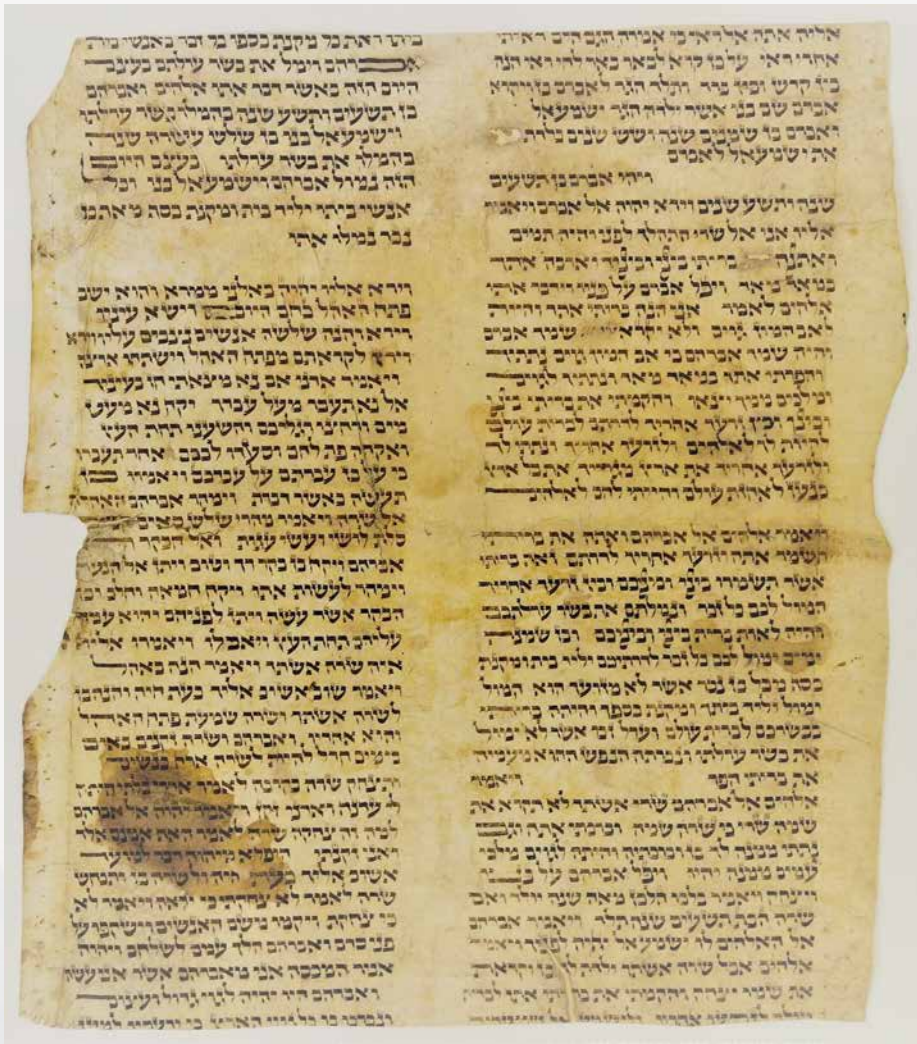 אליה אתה אל ראי כי אמרה הגם הלם ראיתי
אחרי ראי על כן קרא לבאר באר לחי ראי הנה
בין קדש ובין ברד ותלד הגר לאברם בן ויקרא
אברם שם בנו אשר ילדה הגר ישמעאל
ואברם בן שמנים שנה ושש שנים בלדת
את ישמעאל לאברם
ויהי אברם בן תשעים
שנה ותשע שנים וירא יהוה אל אברם ויאמר
אליו אני אל שדי התהלך לפני והיה תמים
ואתנה בריתי ביני ובינך וארבה אותך
במאד מאד ויפל אברם על פניו וידבר אתו
אלהים לאמר אני הנה בריתי אתך והיית
לאב המון גוים ולא יקרא שמך אברם
והיה שמך אברהם כי אב המון גוים נתתיך
והפרתי אתך במאד מאד ונתתיך לגוים
ומלכים ממך יצאו והקמתי את בריתי ביני
ובינך ובין זרעך אחריך לדרתם לברית עולם
להיות לך לאלהים ולזרעך אחריך ונתתי לך
ולזרעך אחריך את ארץ מגריך את כל ארץ
כנען לאחזת עולם והייתי להם לאלהים
ויאמר אלהים אל אברהם ואתה את בריתי
תשמר אתה וזרעך אחריך לדרתם זאת בריתי
אשר תשמרו ביני וביניכם ובין זרעך אחריך
המול לכם כל זכר ונמלתם את בשר ערלתכם
והיה לאות ברית ביני וביניכם ובן שמנת
ימים ימול לכם כל זכר לדרתיכם יליד בית ומקנת
כסף מכל בן נכר אשר לא מזרעך הוא המול
ימול יליד ביתך ומקנת כספך והיתה בריתי
בבשרכם לברית עולם וערל זכר אשר לא ימול
את בשר ערלתו ונכרתה הנפש ההוא מעמיה
את בריתי הפר ויאמר
אלהים אל אברהם שרי אשתך לא תקרא את
שמה שרי כי שרה שמה וברכתי אתה וגם
נתתי ממנה לך בן וברכתיה והיתה לגוים מלכי
עמים ממנה יהיו ויפל אברהם על פניו
ויצחק ויאמר בלבו הלבן מאה שנה יולד ואם
שרה הבת תשעים שנה תלד ויאמר אברהם
אל האלהים לו ישמעאל יחיה לפניך ויאמר
אלהים אבל שרה אשתך ילדת לך בן וקראת
את שמו יצחק והקמתי את בריתי אתו לברית
ביתו ואת כל מקנת כספו כל זכר באנשי בית
אברהם וימל את בשר ערלתם בעצם
היום הזה כאשר דבר אתו אלהים ואברהם
בן תשעים ותשע שנה בהמלו בשר ערלתו
וישמעאל בנו בן שלש עשרה שנה
בהמלו את בשר ערלתו בעצם היום
הזה נמול אברהם וישמעאל בנו וכל
אנשי ביתו יליד בית ומקנת כסף מאת בן
נכר נמלו אתו
וירא אליו יהוה באלני ממרא והוא ישב
פתח האהל כחם היום וישא עיניו
וירא והנה שלשה אנשים נצבים עליו וירא
וירץ לקראתם מפתח האהל וישתחו ארצה
ויאמר אדני אם נא מצאתי חן בעיניך
אל נא תעבר מעל עבדך יקח נא מעט
מים ורחצו רגליכם והשענו תחת העץ
ואקחה פת לחם וסעדו לבכם אחר תעברו
כי על כן עברתם על עבדכם ויאמרו כן
תעשה כאשר דברת וימהר אברהם האהלה
אל שרה ויאמר מהרי שלש סאים קמח
סלת לושי ועשי עגות ואל הבקר רץ
אברהם ויקח בן בקר רך וטוב ויתן אל הנער
וימהר לעשות אתו ויקח חמאה וחלב ובן
הבקר אשר עשה ויתן לפניהם והוא עמד
עליהם תחת העץ ויאכלו ויאמרו אליו
איה שרה אשתך ויאמר הנה באהל
ויאמר שוב אשוב אליך כעת חיה והנה בן
לשרה אשתך ושרה שמעת פתח האהל
והוא אחריו ואברהם ושרה זקנים באים
בימים חדל להיות לשרה ארח כנשים
ותצחק שרה בקרבה לאמר אחרי בלתי היתה
לי עדנה ואדני זקן ויאמר יהוה אל אברהם
למה זה צחקה שרה לאמר האף אמנם אלד
ואני זקנתי היפלא מיהוה דבר למועד
אשוב אליך כעת חיה ולשרה בן ותכחש
שרה לאמר לא צחקתי כי יראה ויאמר לא
כי צחקת ויקמו משם האנשים וישקפו על
פני סדם ואברהם הלך עמם לשלחם ויהוה
אמר המכסה אני מאברהם אשר אני עשה
ואברהם היו יהיה לגוי גדול ועצום
ונברכו בו כל גויי הארץ כי ידעתיו למען